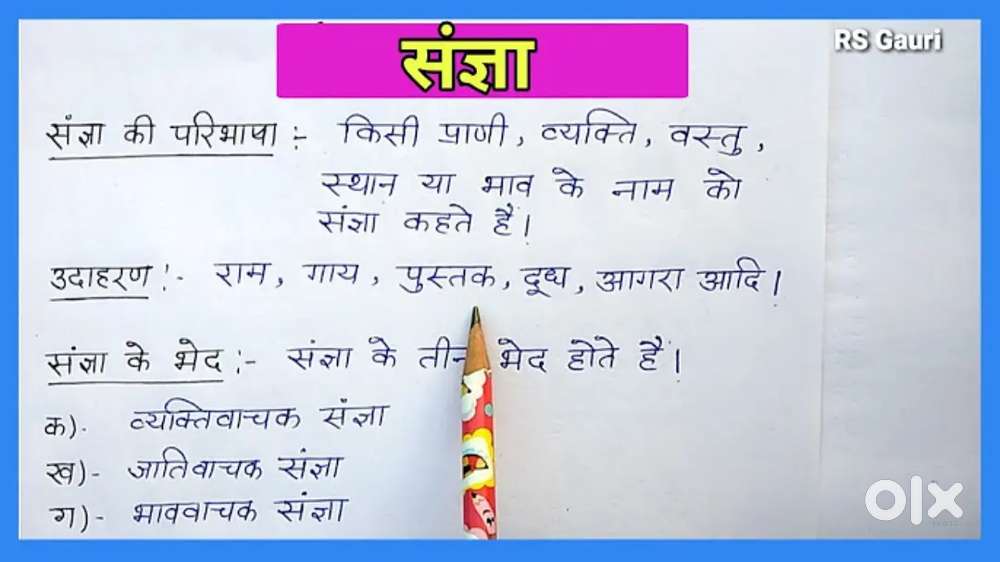 संज्ञा
RS Gauri
संज्ञा की परिभाषा :- किसी प्राणी, व्यक्ति, वस्तु,
स्थान या भाव के नाम को
संज्ञा कहते हैं।
उदाहरण :- राम, गाय, पुस्तक, दूध, आगरा आदि।
संज्ञा के भेद :- संज्ञा के तीन भेद होते हैं।
क)- व्यक्तिवाचक संज्ञा
ख)- जातिवाचक संज्ञा
ग)- भाववाचक संज्ञा
olx